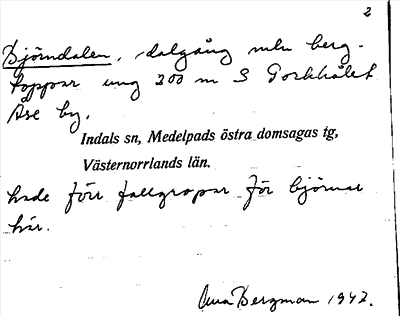 2
Björndalen, dalgång mln berg-
toppar ung 200 m S Porkhålet
Åse by.
Indals sn, Medelpads östra domsagas tg,
Västernorrlands län.
hade förr fallgropar för björnar
här.
Bergman 1942.